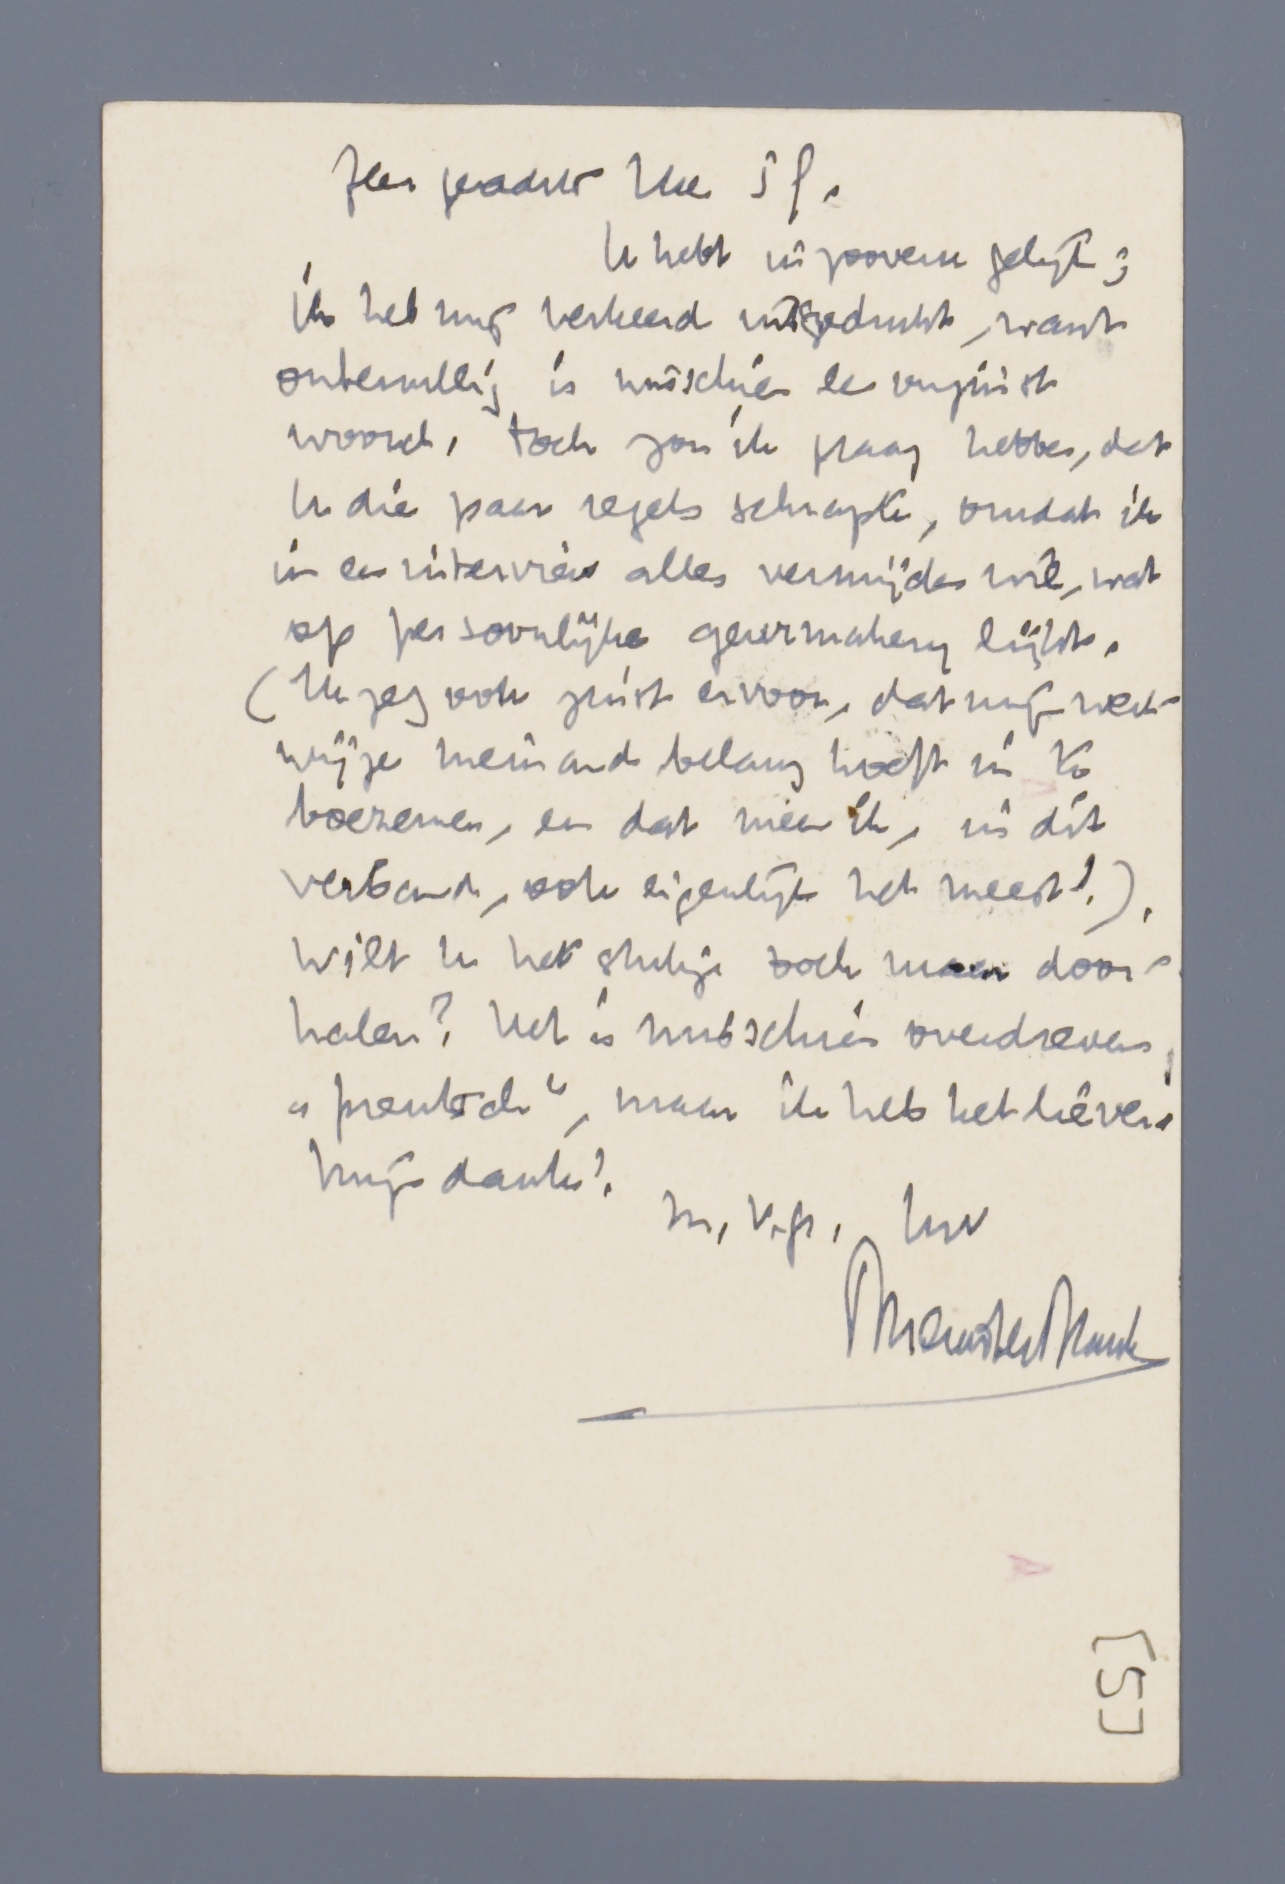 Zeer geachte Heer
U hebt in zooverre gelijk;
ik heb mij verkeerd uitgedrukt, want
onteraillig is misschien een onjuist
woord. Toch zou ik graag hebben, dat
U die paar regels schrapte, omdat ik
in een interview alles vermijden wil, wat
op persoonlijke gewrmakerij lijkt.
(Ik zeg ook juist ervoor, dat mijn werk-
wijze niemand belang hoeft in te
boezemen, en dat meen ik, in dit
verband, ook eigenlijk het meest!).
Wilt U het stukje toch maar door-
halen? Het is misschien overdreven
„preutsch“, maar ik heb het liever.
Mijn dank!
m. v. gr. Uw
[5]